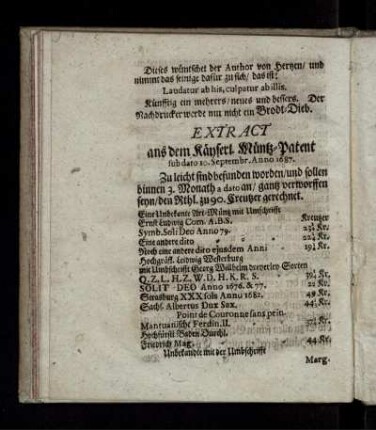 Dieses wüntschet der Author von Hertzen/ und
nimmt das seinige dafür zu sich/ das ist:
Laudatur ab his, culpatur ab illis.
Künfftig ein mehrers/ neues und bessers. Der
Nachdrucker werde nur nicht ein Brodt-Dieb.
EXTRACT
aus dem Käyserl. Müntz-Patent
sub dato 10. Septembr. Anno 1687.
Zu leicht sind befunden worden/ und sollen
binnen 3. Monath a dato an/ gantz verworffen
seyn/ den Rthl. zu 90. Creutzer gerechnet.
Eine Unbekante Art-Müntz mit Umschrifft
Ernst Ludwig Com. A.B.S. Kreutzer
Symb. Soli Deo Anno 79.
Eine andere dito
Noch eine andere dito ejusdem Anni
Hochgräfl. Leidwig Westerburg
mit Umbschrifft Georg Wilhelm dreyerley Sorten
Q. Z. L. H. Z. W. D. H. K. R. S.
SOLIT DEO Anno 1676. & 77.
Strasburg XXX sols Anno 1682.
Sachs. Albertus Dux Sax.
Point de Couronne sans pein.
Mantuanische Ferdin. II.
Hochfürstl. Baden Durchl.
Friedrich Mag. 44 Kr.
Unbekandte mit der Umbschrifft
Marg.